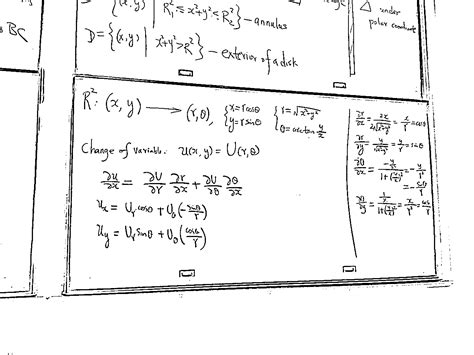 {(x,y) | R₁² ≤ x²+y² ≤ R₂²} – annulus
D = {(x,y) | x²+y² > R²} – exterior of a disk
△ under
polar coordinate
BC
R²: (x, y) ⟶ (r, θ), {x = r cosθ {r = √x²+y²
{y = r sinθ {θ = arctan y/x
Change of variable: u(x, y) = U(r, θ)
∂u/∂x = ∂U/∂r ∂r/∂x + ∂U/∂θ ∂θ/∂x
u_x = U_r cosθ + U_θ (− sinθ/r)
u_y = U_r sinθ + U_θ (cosθ/r)
∂r/∂x = 2x/2√x²+y² = x/r = cosθ
∂r/∂y = y/√x²+y² = y/r = sinθ
∂θ/∂x = (−y/x²)/(1+(y/x)²) = −y/r²
= − sinθ/r
(1/x)/(1+(y/x)²) = x/r² = cosθ/r